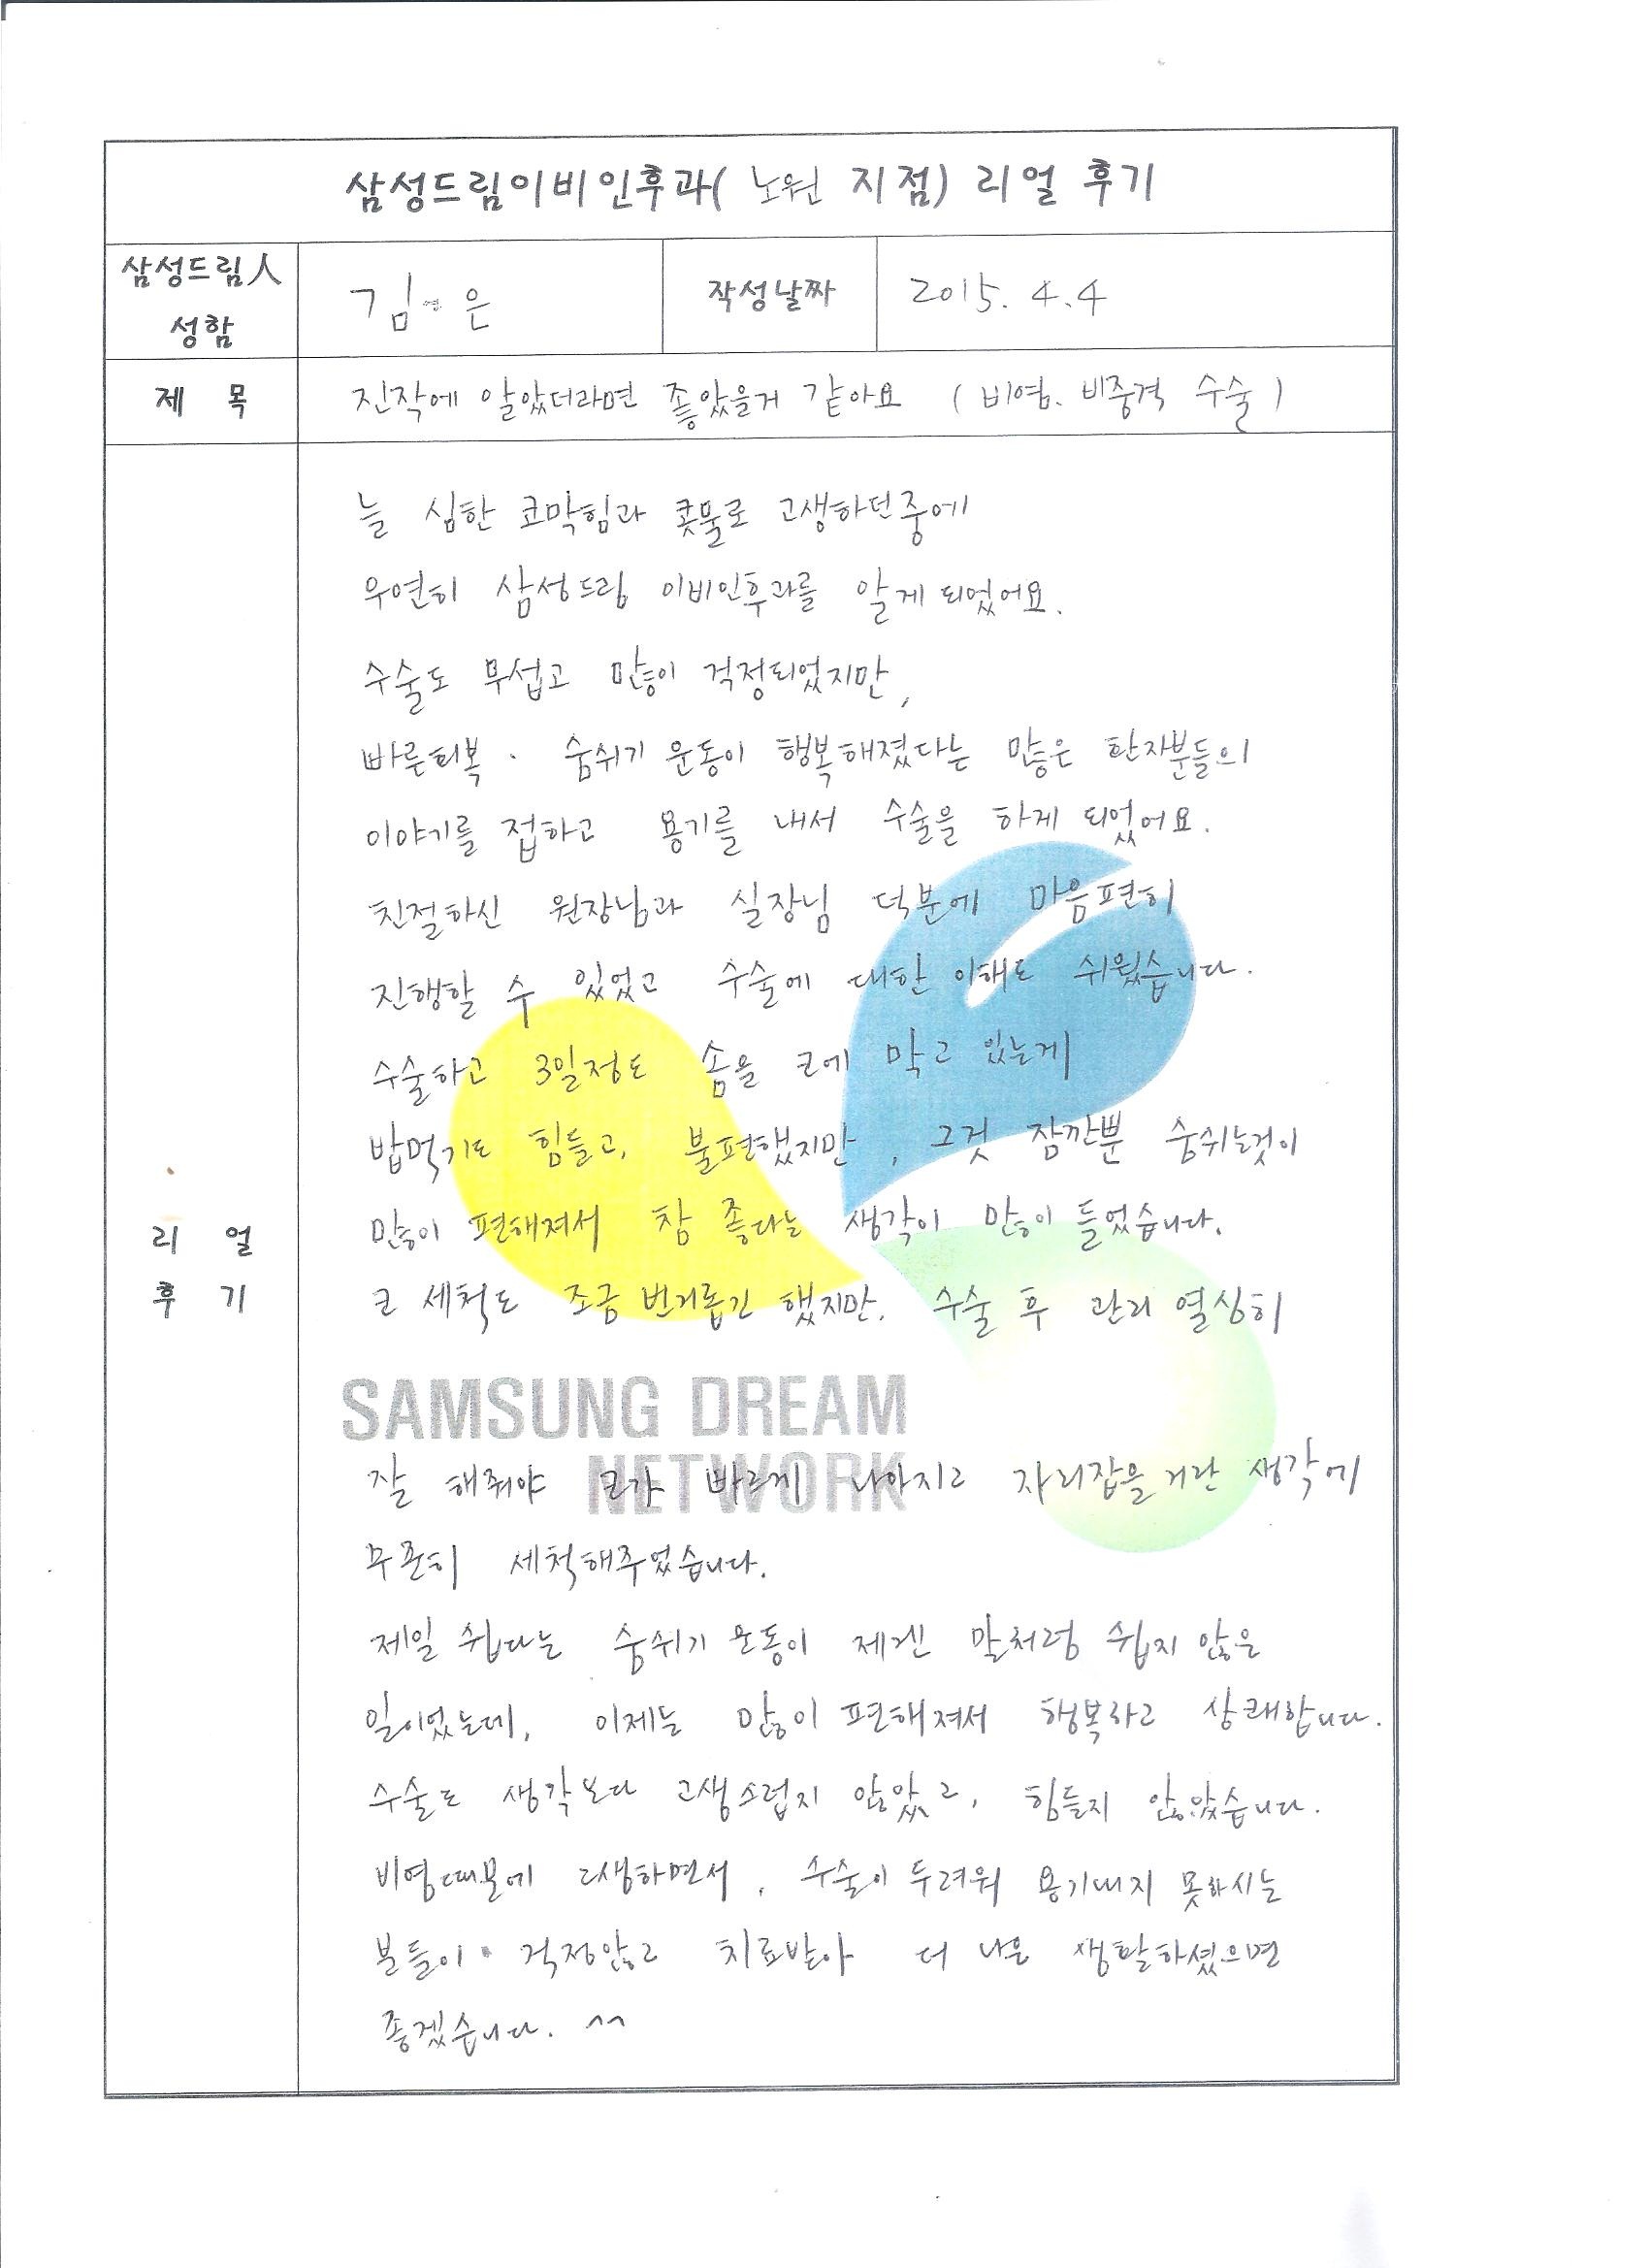 삼성드림이비인후과( 노원 지점) 리얼 후기
삼성드림人 성함
김 은
작성날짜
2015. 4. 4
제 목
진작에 알았더라면 좋았을거 같아요 ( 비염. 비중격 수술 )
리 얼
후 기
늘 심한 코막힘과 콧물로 고생하던중에
우연히 삼성드림 이비인후과를 알게 되었어요.
수술도 무섭고 많이 걱정되었지만,
빠른회복 · 숨쉬기 운동이 행복해졌다는 많은 환자분들의
이야기를 접하고 용기를 내서 수술을 하게 되었어요.
친절하신 원장님과 실장님 덕분에 마음편히
진행할 수 있었고 수술에 대한 이해도 쉬웠습니다.
수술하고 3일정도 솜을 코에 막고 있는게
밥먹기도 힘들고, 불편했지만, 그것 잠깐뿐 숨쉬는것이
많이 편해져서 참 좋다는 생각이 많이 들었습니다.
코 세척도 조금 번거롭긴 했지만, 수술 후 관리 열심히
SAMSUNG DREAM
NETWORK
잘 해줘야 코가 바르게 나아지고 자리잡을 거란 생각에
꾸준히 세척해주었습니다.
제일 쉽다는 숨쉬기 운동이 제겐 말처럼 쉽지 않은
일이었는데, 이제는 많이 편해져서 행복하고 상쾌합니다.
수술도 생각보다 고생스럽지 않았고, 힘들지 않았습니다.
비염때문에 고생하면서, 수술이 두려워 용기내지 못하시는
분들이 걱정않고 치료받아 더 나은 생활하셨으면
좋겠습니다. ^^